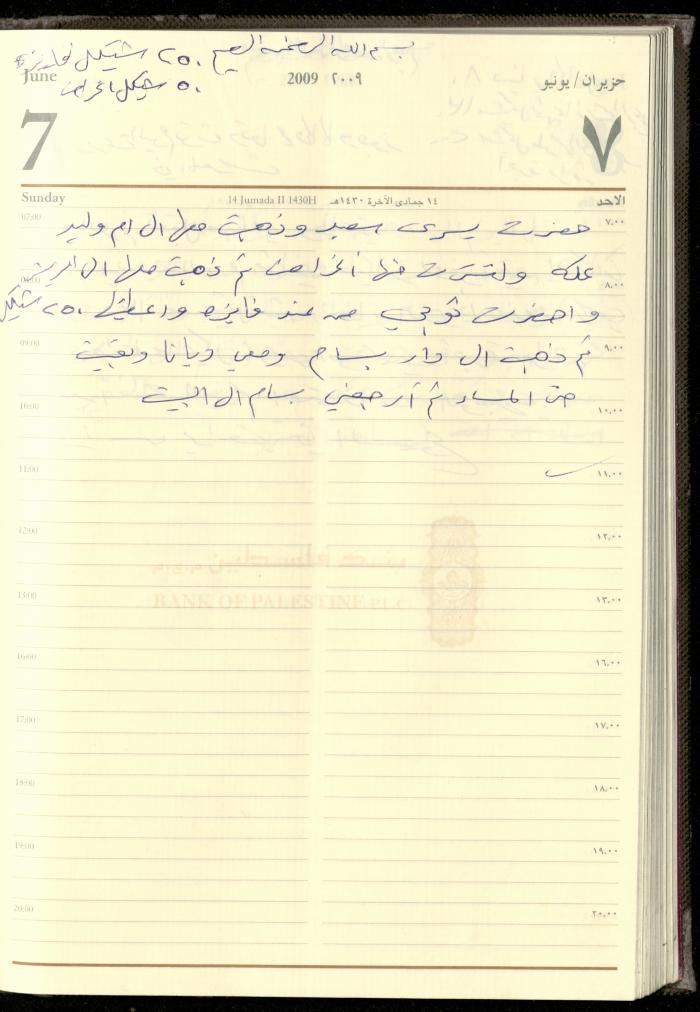 بسم الله الرحمن الرحيم ٢٥٠ شيكل لفايزة
٥٠ شيكل اغراض
June 2009 ٢٠٠٩ حزيران / يونيو
7 ٧
Sunday 14 Jumada II 1430H ١٤ جمادى الآخرة ١٤٣٠هـ الاحد
07:00 حضرت يسرى سعيد وذهبت معها ال ام وليد ٧،٠٠
08:00 عكه واشتريت منها اغراض ثم ذهبت معها ال البريد ٨،٠٠
واحضرت من عند فايزه واعطيتها ٢٥٠ شيكل
09:00 ثم ذهبت ال دار بسام ومعي ديانا وبقيت ٩،٠٠
10:00 حتى المساء ثم أرجعني بسام ال البيت ١٠،٠٠
11:00 ١١،٠٠
12:00 ١٢،٠٠
BANK OF PALESTINE PLC
13:00 ١٣،٠٠
16:00 ١٦،٠٠
17:00 ١٧،٠٠
18:00 ١٨،٠٠
19:00 ١٩،٠٠
20:00 ٢٠،٠٠